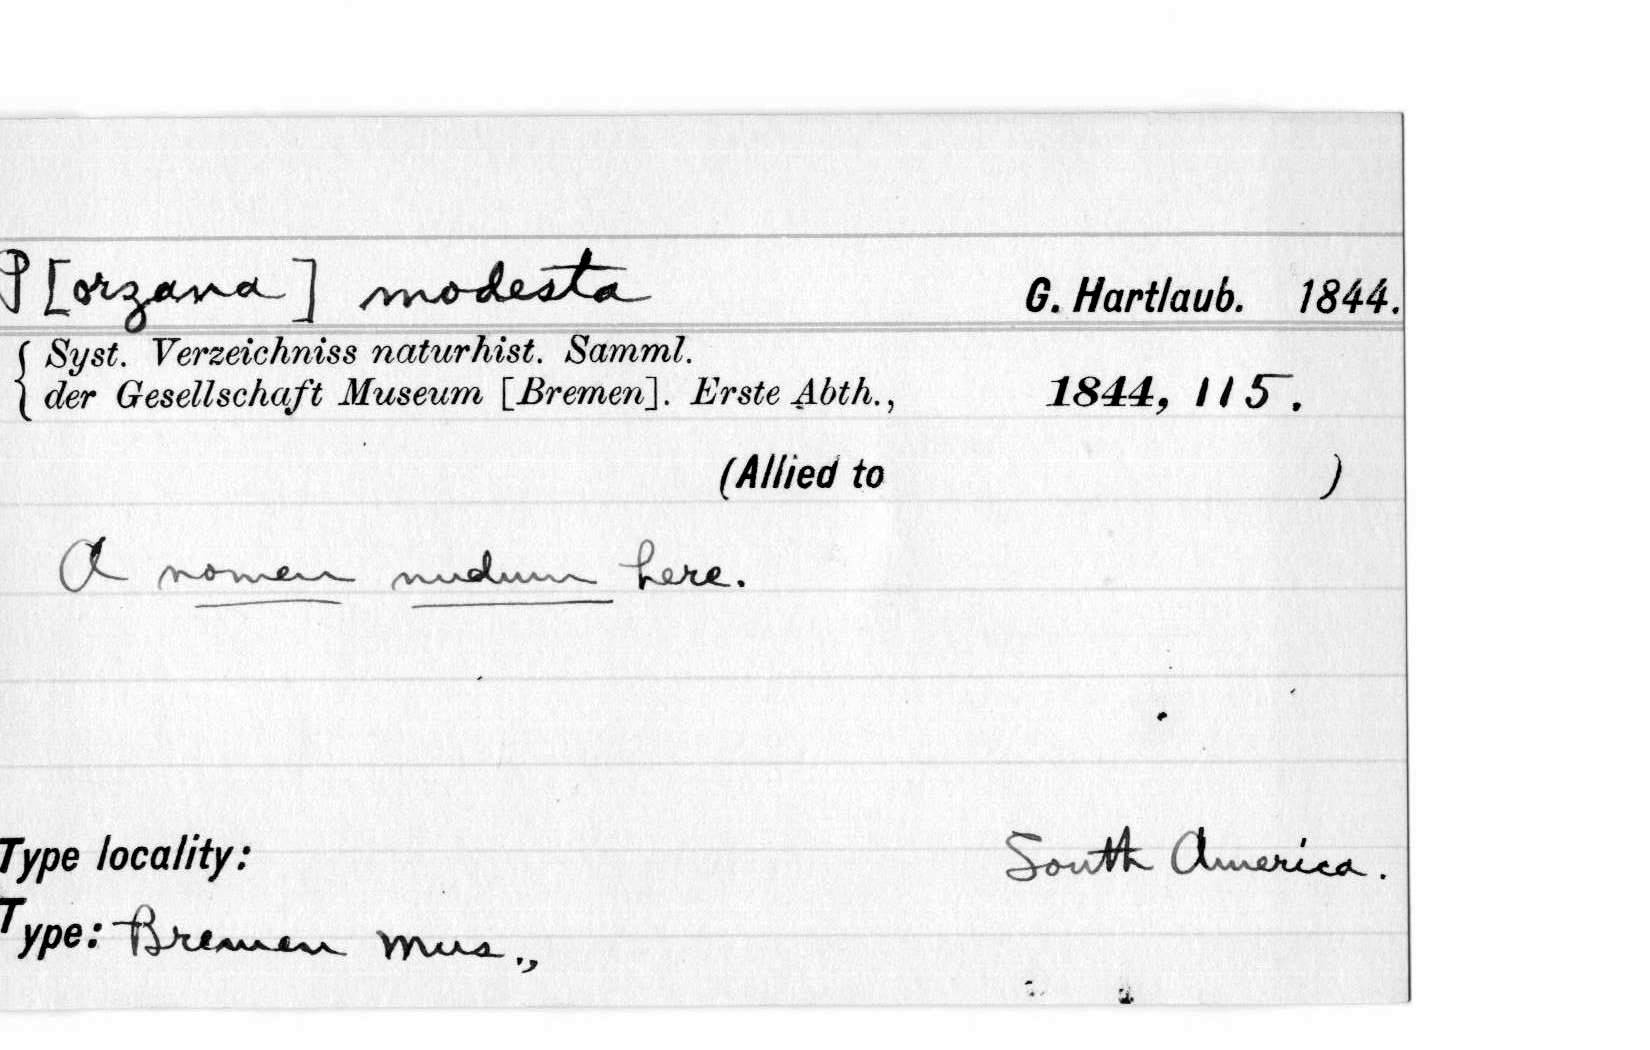 P[orzana] modesta G. Hartlaub. 1844.
Syst. Verzeichniss naturhist. Samml.
der Gesellschaft Museum [Bremen]. Erste Abth., 1844, 115.
(Allied to )
A nomen nudum here.
Type locality: South America.
Type: Bremen Mus.,